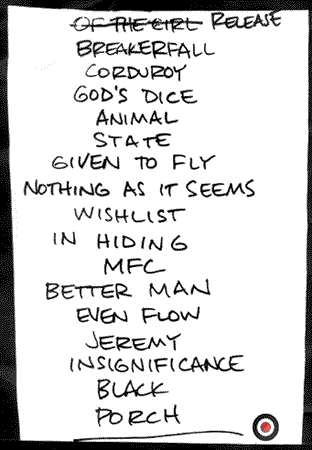 OF THE GIRL RELEASE
BREAKERFALL
CORDUROY
GOD'S DICE
ANIMAL
STATE
GIVEN TO FLY
NOTHING AS IT SEEMS
WISHLIST
IN HIDING
MFC
BETTER MAN
EVEN FLOW
JEREMY
INSIGNIFICANCE
BLACK
PORCH